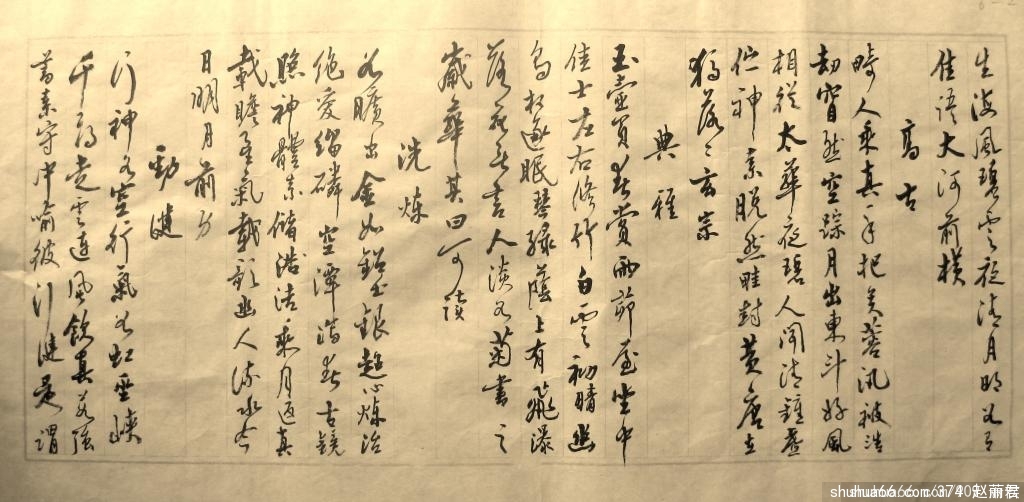 生海風碧云夜渚月明如有
佳語大河前橫
高古
畸人乘真手把芙蓉汎彼浩
劫窅然空踪月出東斗好風
相從太華夜碧人聞清鐘虛
佇神素脫然畦封黃唐在
獨落々玄宗
典雅
玉壺買春賞雨茆屋坐中
佳士左右修竹白雲初晴幽
鳥相逐眠琴綠蔭上有飛瀑
落花无言人淡如菊書之
歲華其曰可讀
洗煉
如曠出金如鉛出銀超心煉冶
絕愛緇磷空潭瀉春古鏡
照神體素儲潔乘月返真
載瞻星氣載歌幽人流水今
日明月前身
勁健
行神如空行氣如虹巫峽
千尋走云連風飲真茹強
蓄素守中喻彼行健是謂